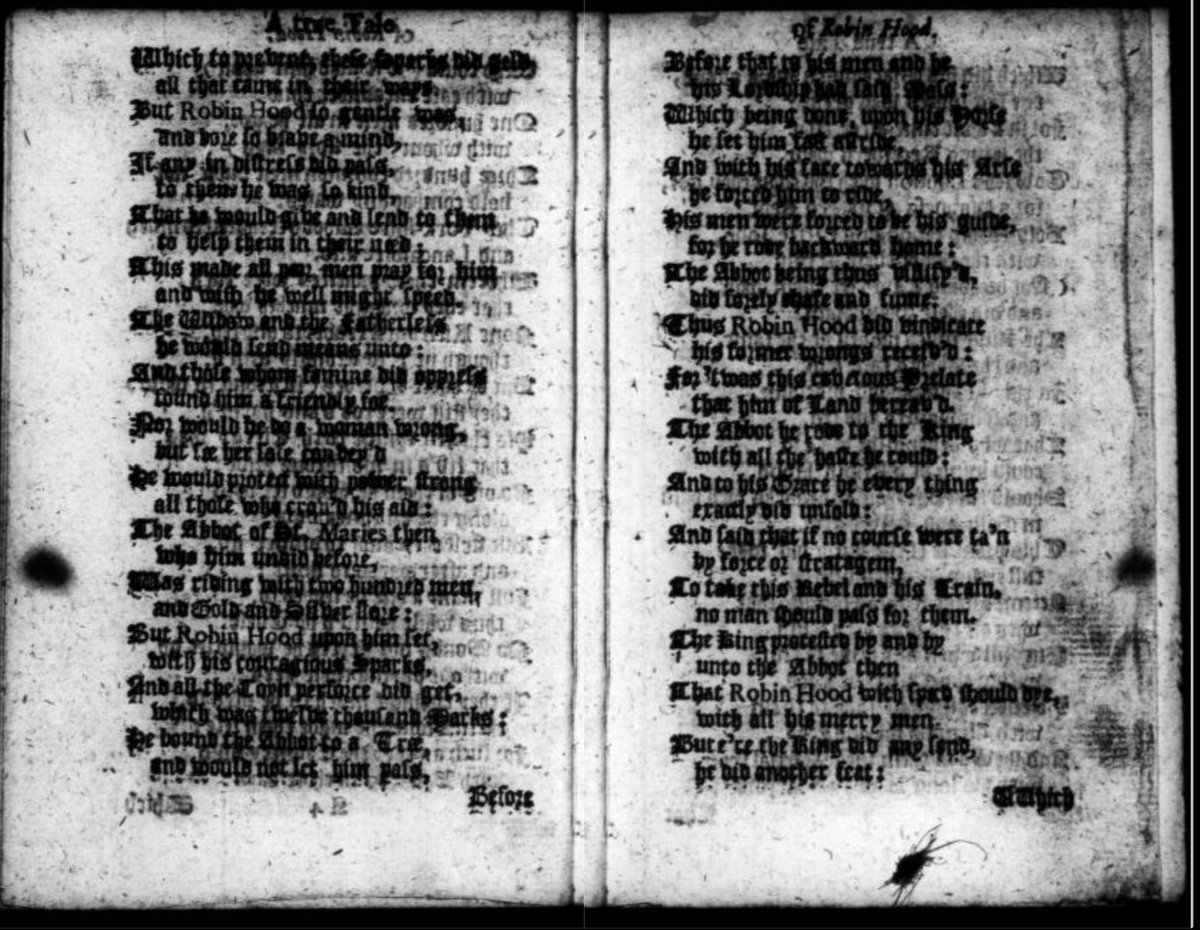 A true Tale
Which to prevent, these sparks did geld,
all that came in their ways.
But Robin Hood so gentle was,
and bore so brave a mind,
If any in distress did pass,
to them he was so kind.
That he would give and lend to them
to help them in their need:
This made all poor men pray for him
and wish he well might speed.
The Widow and the Fatherless
he would send means unto:
And those whom famine did oppress
found him a friendly foe.
Nor would he do a woman wrong,
but see her safe convey'd
He would protect with power strong
all those who crav'd his aid:
The Abbot of St. Maries then
who him undid before,
Was riding with two hundred men,
and Gold and Silver store:
But Robin Hood upon him set,
with his couragious Sparks,
And all the Coyn perforce did get,
which was twelve thousand Marks:
He bound the Abbot to a Tree,
and would not let him pass,
Before
of Robin Hood.
Before that to his men and he
his Lordship had said Mass:
Which being done, upon his Horse
he set him fast astride,
And with his face towards his Arse
he forced him to ride,
His men were forced to be his guide,
for he rode backward home:
The Abbot being thus villify'd,
did sorely chafe and fume:
Thus Robin Hood did vindicate
his former wrongs receiv'd:
For 'twas this covetous Prelate
that him of Land bereav'd.
The Abbot he rode to the King
with all the haste he could:
And to his Grace he every thing
exactly did unfold:
And said that if no course were ta'n
by force or stratagem,
To take this Rebel and his Train,
no man should pass for them.
The King protested by and by
unto the Abbot then
That Robin Hood with speed should dye,
with all his merry men.
But e're the King did any send,
he did another feat:
VVhich